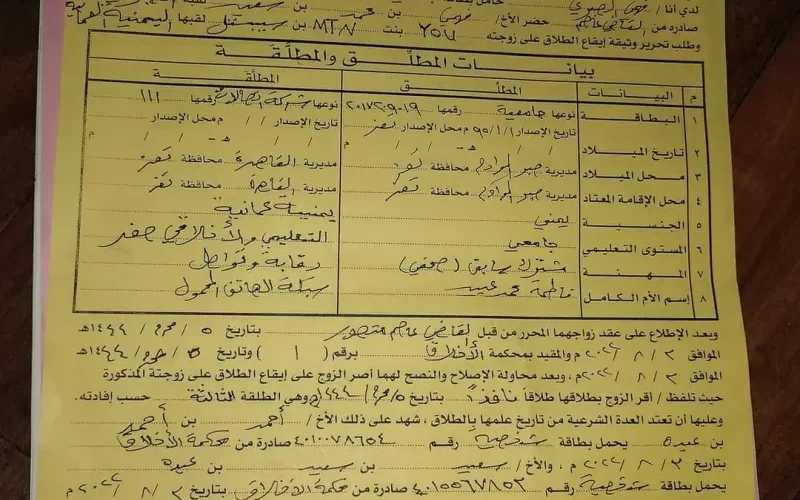 لدي أنا /
صادرة من حضر الأخ / بن محمد بن
وطلب تحرير وثيقة إيقاع الطلاق على زوجته YOU بنت MTN بن سبيستل لقبها اليمنية العمانية
بيانات المطلق والمطلقة
م البيانات المطلق المطلقة
١ البطاقة نوعها جامعية رقمها ٢٠١٧٢٠٩٠١٩ نوعها شركة اتصالات رقمها ١١١
تاريخ الإصدار ١/١/٩٥ م محل الإصدار تعز تاريخ الإصدار / / محل الإصدار
٢ تاريخ الميلاد / / هـ / / م / / هـ / / م
٣ محل الميلاد مديرية صبر الموادم محافظة تعز مديرية القاهرة محافظة تعز
٤ محل الإقامة المعتاد مديرية صبر الموادم محافظة تعز مديرية القاهرة محافظة تعز
٥ الجنسية يمني يمنية عمانية
٦ المستوى التعليمي جامعي التعليمي والأخلاقي صفر
٧ المهنة مشترك سابق (صحفي) رقابة وتواصل
٨ إسم الأم الكامل فاطمة محمد عبيد شبكة الهاتف المحمول
وبعد الإطلاع على عقد زواجهما المحرر من قبل القاضي عاصم منصور بتاريخ ٥ / محرم / ١٤٤٤هـ
الموافق ٣ / ٨ / ٢٠٢٢ م والمقيد بمحكمة الأخلاق برقم ( ١ ) وتاريخ ٥ / محرم / ١٤٤٤هـ
الموافق ٣ / ٨ / ٢٠٢٢م ، وبعد محاولة الإصلاح والنصح لهما أصر الزوج على إيقاع الطلاق على زوجتة المذكورة
حيث تلفظ / أقر الزوج بطلاقها طلاقاً نافذاً بتاريخ ٥/محرم/١٤٤٤هـ وهي الطلقة الثالثة حسب إفادته.
وعليها أن تعتد العدة الشرعية من تاريخ علمها بالطلاق ، شهد على ذلك الأخ / أحمد بن أحمد
بن عبده يحمل بطاقة شخصية رقم ٤٠١٠٠٧٨٦٥٤ صادرة من محكمة الأخلاق
بتاريخ ٣ / ٨ / ٢٠٢٢ م ، والأخ / سعيد بن سعيد بن عبده
يحمل بطاقة شخصية رقم ٤٠١٥٥٦٧٨٥٣ صادرة من محكمة الأخلاق بتاريخ ٣ / ٨ / ٢٠٢٢ م